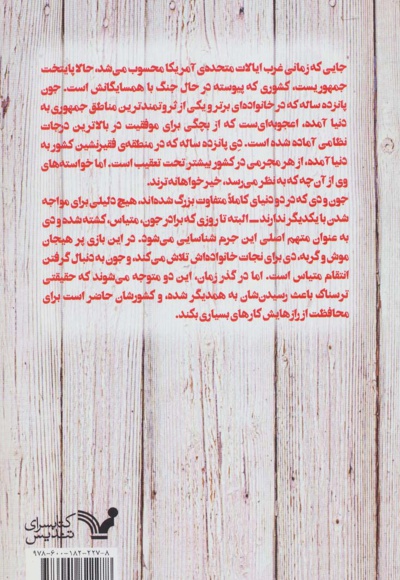 جایی که زمانی غرب ایالات متحده‌ی آمریکا محسوب می‌شد، حالا پایتخت
جمهوریست، کشوری که پیوسته در حال جنگ با همسایگانش است. جون
پانزده ساله که در خانواده‌ای برتر و یکی از ثروتمندترین مناطق جمهوری به
دنیا آمده، اعجوبه‌ای‌ست که از بچگی برای موفقیت در بالاترین درجات
نظامی آماده شده است. دی پانزده ساله که در منطقه‌ی فقیرنشین کشور به
دنیا آمده، از هر مجرمی در کشور بیشتر تحت تعقیب است. اما خواسته‌های
وی از آن چه که به نظر می‌رسد، خیرخواهانه ترند.
جون و دی که در دو دنیای کاملاً متفاوت بزرگ شده‌اند، هیچ دلیلی برای مواجه
شدن با یکدیگر ندارند — البته تا روزی که برادر جون، متیاس، کشته شده و دی
به عنوان متهم اصلی این جرم شناسایی می‌شود. در این بازی پر هیجان
موش و گربه، دی برای نجات خانواده‌اش تلاش می‌کند، و جون به دنبال گرفتن
انتقام متیاس است. اما در گذر زمان، این دو متوجه می‌شوند که حقیقتی
ترسناک باعث رسیدن‌شان به همدیگر شده، و کشورشان حاضر است برای
محافظت از رازهایش کارهای بسیاری بکند.
کتابسرای
تندیس
۹۷۸-۶۰۰-۱۸۲-۲۲۷-۸